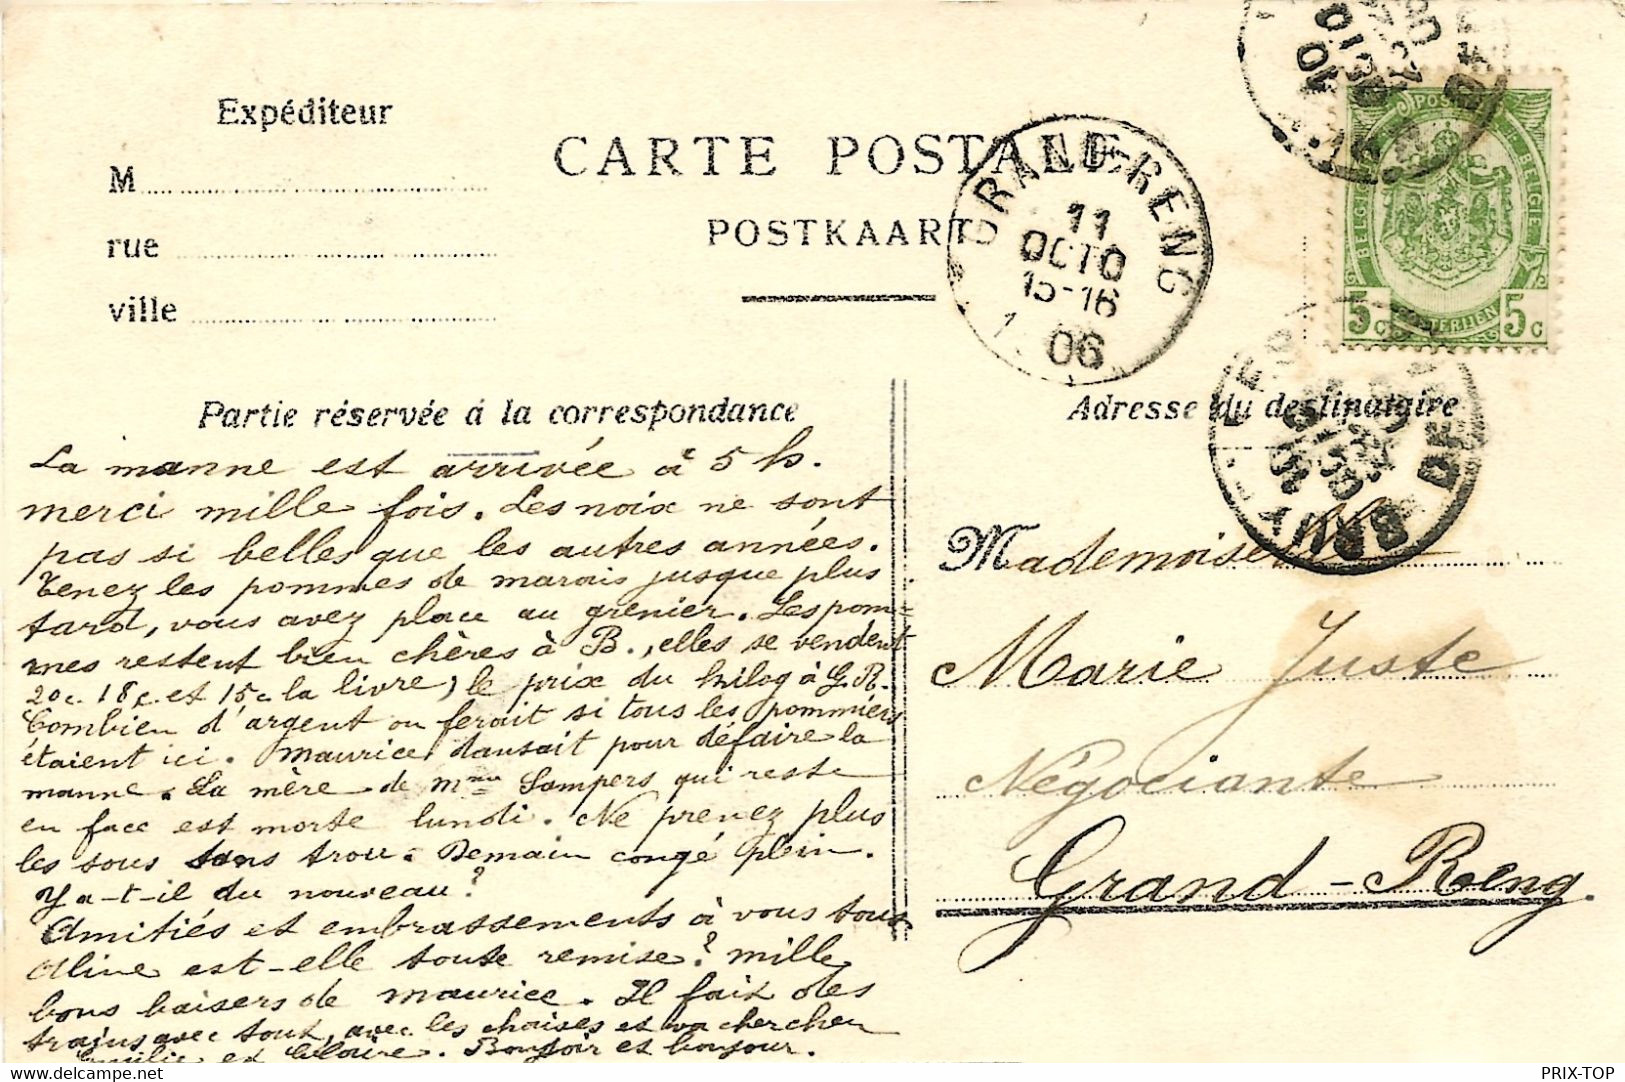 Expéditeur
M
rue
ville
CARTE POSTALE
POSTKAART
GRAND-RENG
11
OCTO
15-16
06
POSTES
BELGIQUE
BELGIE
5c
5c
Partie réservée á la correspondance
Adresse du destinataire
La manne est arrivée à 5 h.
merci mille fois. Les noix ne sont
pas si belles que les autres années.
Tenez les pommes de marais jusque plus
tard, vous avez place au grenier. Les pom=
mes restent bien chères à B., elles se vendent
20c. 18c. et 15c la livre, le prix du kilog à G.R.
Combien d'argent on ferait si tous les pommiers
étaient ici. Maurice dansait pour défaire la
manne. La mère de Mme Sampers qui reste
en face est morte lundi. Ne prenez plus
les sous sans trou. Demain congé plein.
Y a-t-il du nouveau?
Amitiés et embrassements à vous tous
Aline est-elle toute remise? mille
bons baisers de Maurice. Il fait des
trains avec tout, avec les chaises et va chercher
Emilie et Cloire. Bonsoir et bonjour.
Mademoiselle
Marie Juste
Négociante
Grand-Reng.
delcampe.net
PRIX-TOP